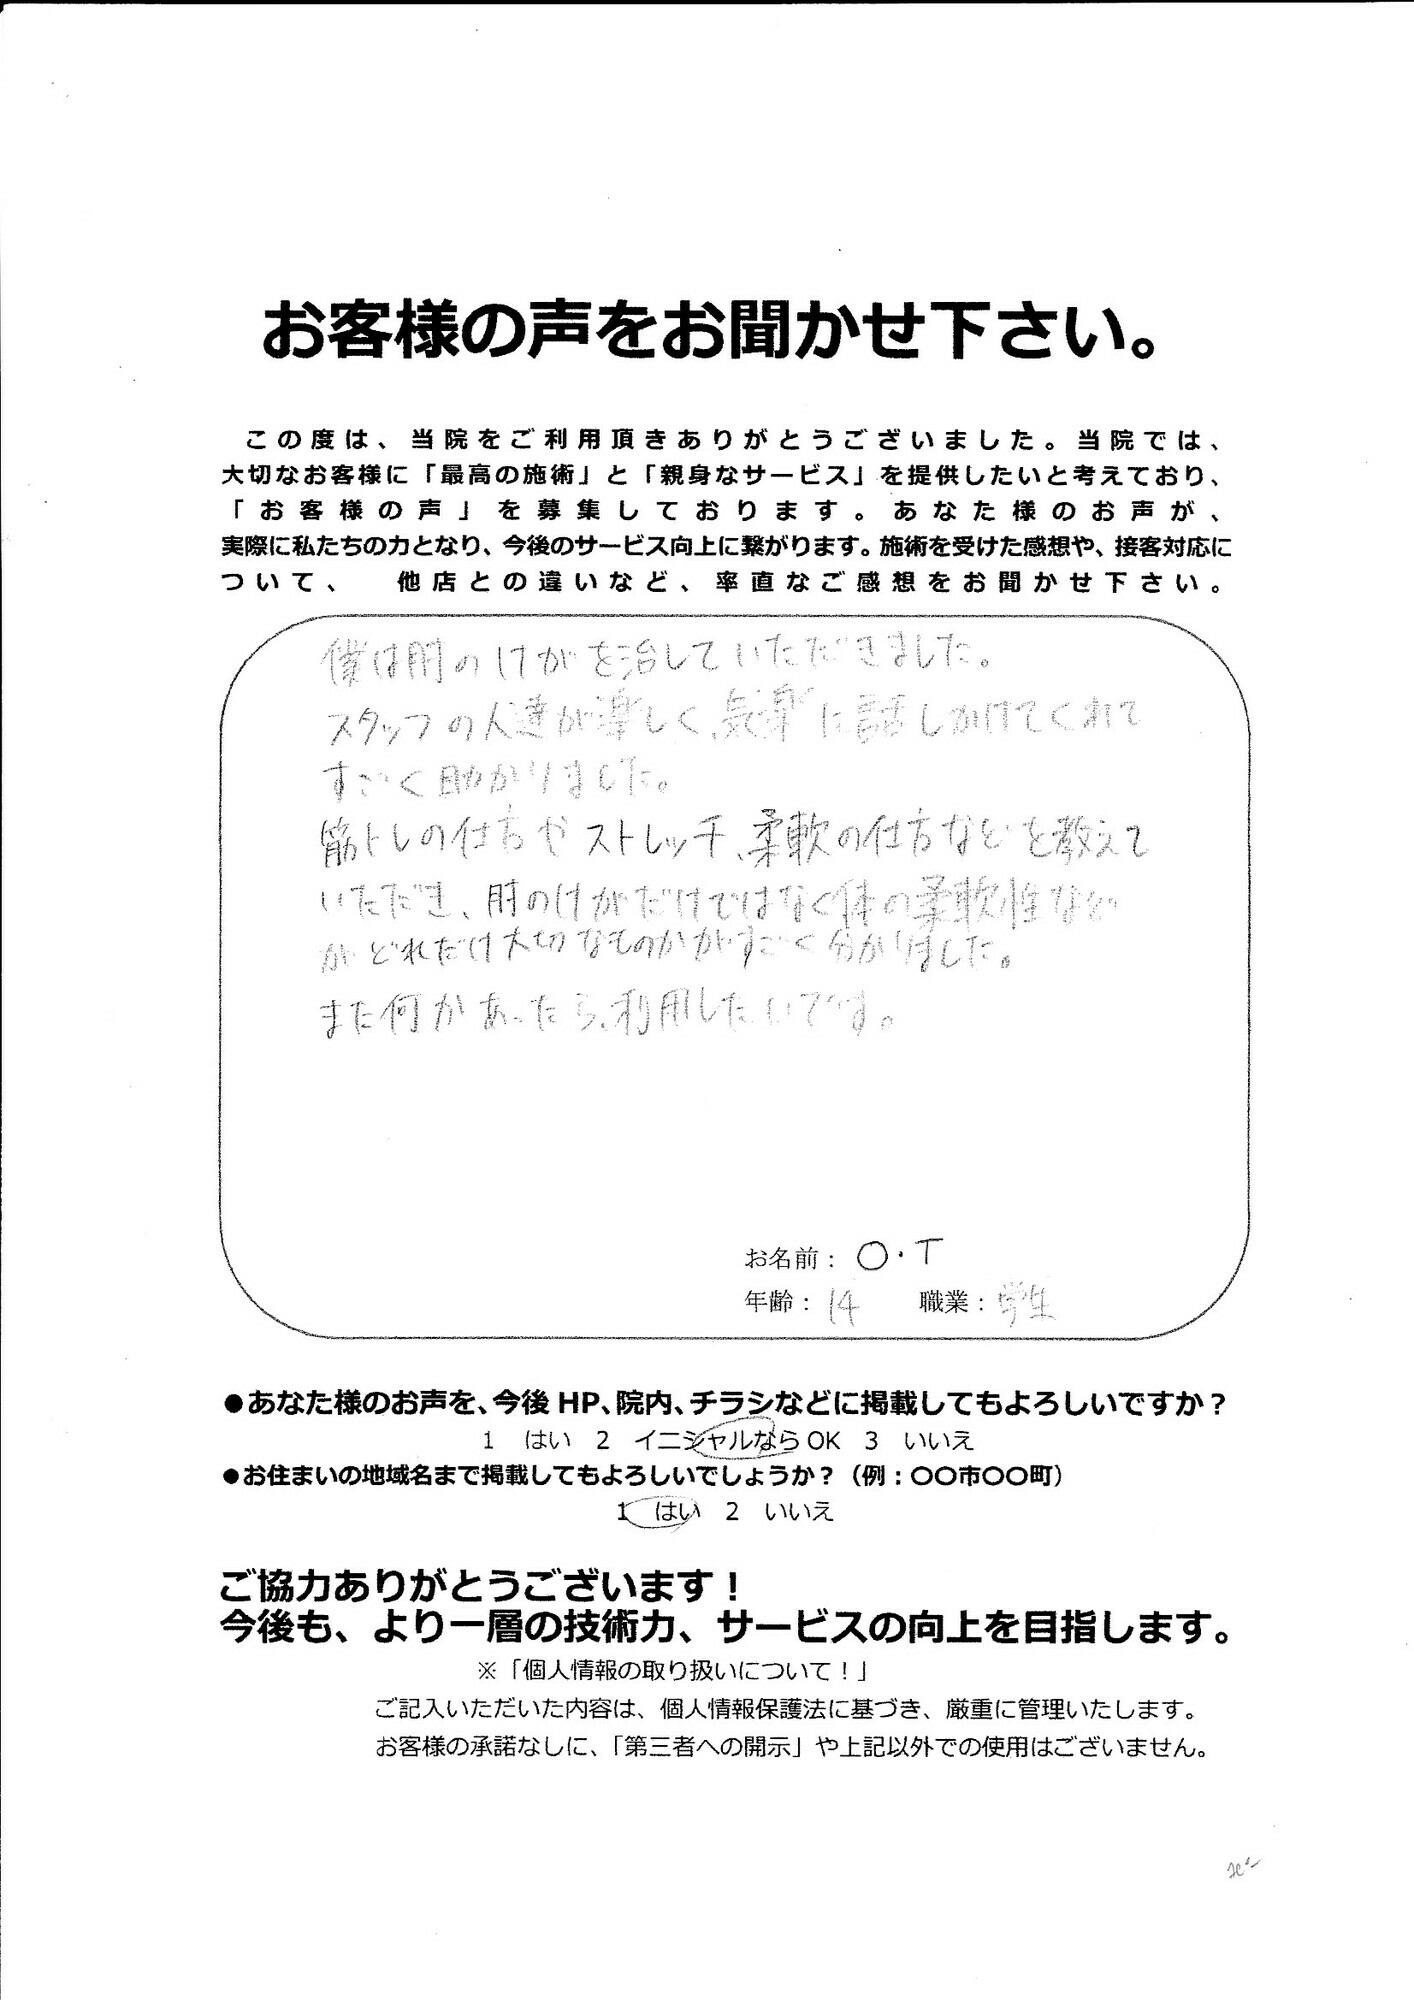 お客様の声をお聞かせ下さい。
この度は、当院をご利用頂きありがとうございました。当院では、
大切なお客様に「最高の施術」と「親身なサービス」を提供したいと考えており、
「お客様の声」を募集しております。あなた様のお声が、
実際に私たちの力となり、今後のサービス向上に繋がります。施術を受けた感想や、接客対応に
ついて、 他店との違いなど、率直なご感想をお聞かせ下さい。
僕は肘のけがを治していただきました。
スタッフの人達が楽しく、気楽に話しかけてくれて
すごく助かりました。
筋トレの仕方やストレッチ、柔軟の仕方などを教えて
いただき、肘のけがだけではなく体の柔軟性など
がどれだけ大切なものかがすごく分かりました。
また何かあったら、利用したいです。
お名前：O・T
年齢：14 職業：学生
●あなた様のお声を、今後 HP、院内、チラシなどに掲載してもよろしいですか？
1 はい 2 イニシャルなら OK 3 いいえ
●お住まいの地域名まで掲載してもよろしいでしょうか？（例：〇〇市〇〇町）
1 はい 2 いいえ
ご協力ありがとうございます！
今後も、より一層の技術力、サービスの向上を目指します。
※「個人情報の取り扱いについて！」
ご記入いただいた内容は、個人情報保護法に基づき、厳重に管理いたします。
お客様の承諾なしに、「第三者への開示」や上記以外での使用はございません。